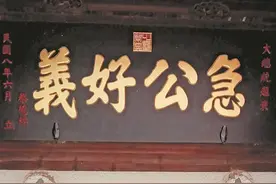 大總統
急公好義
民國八年六月 立